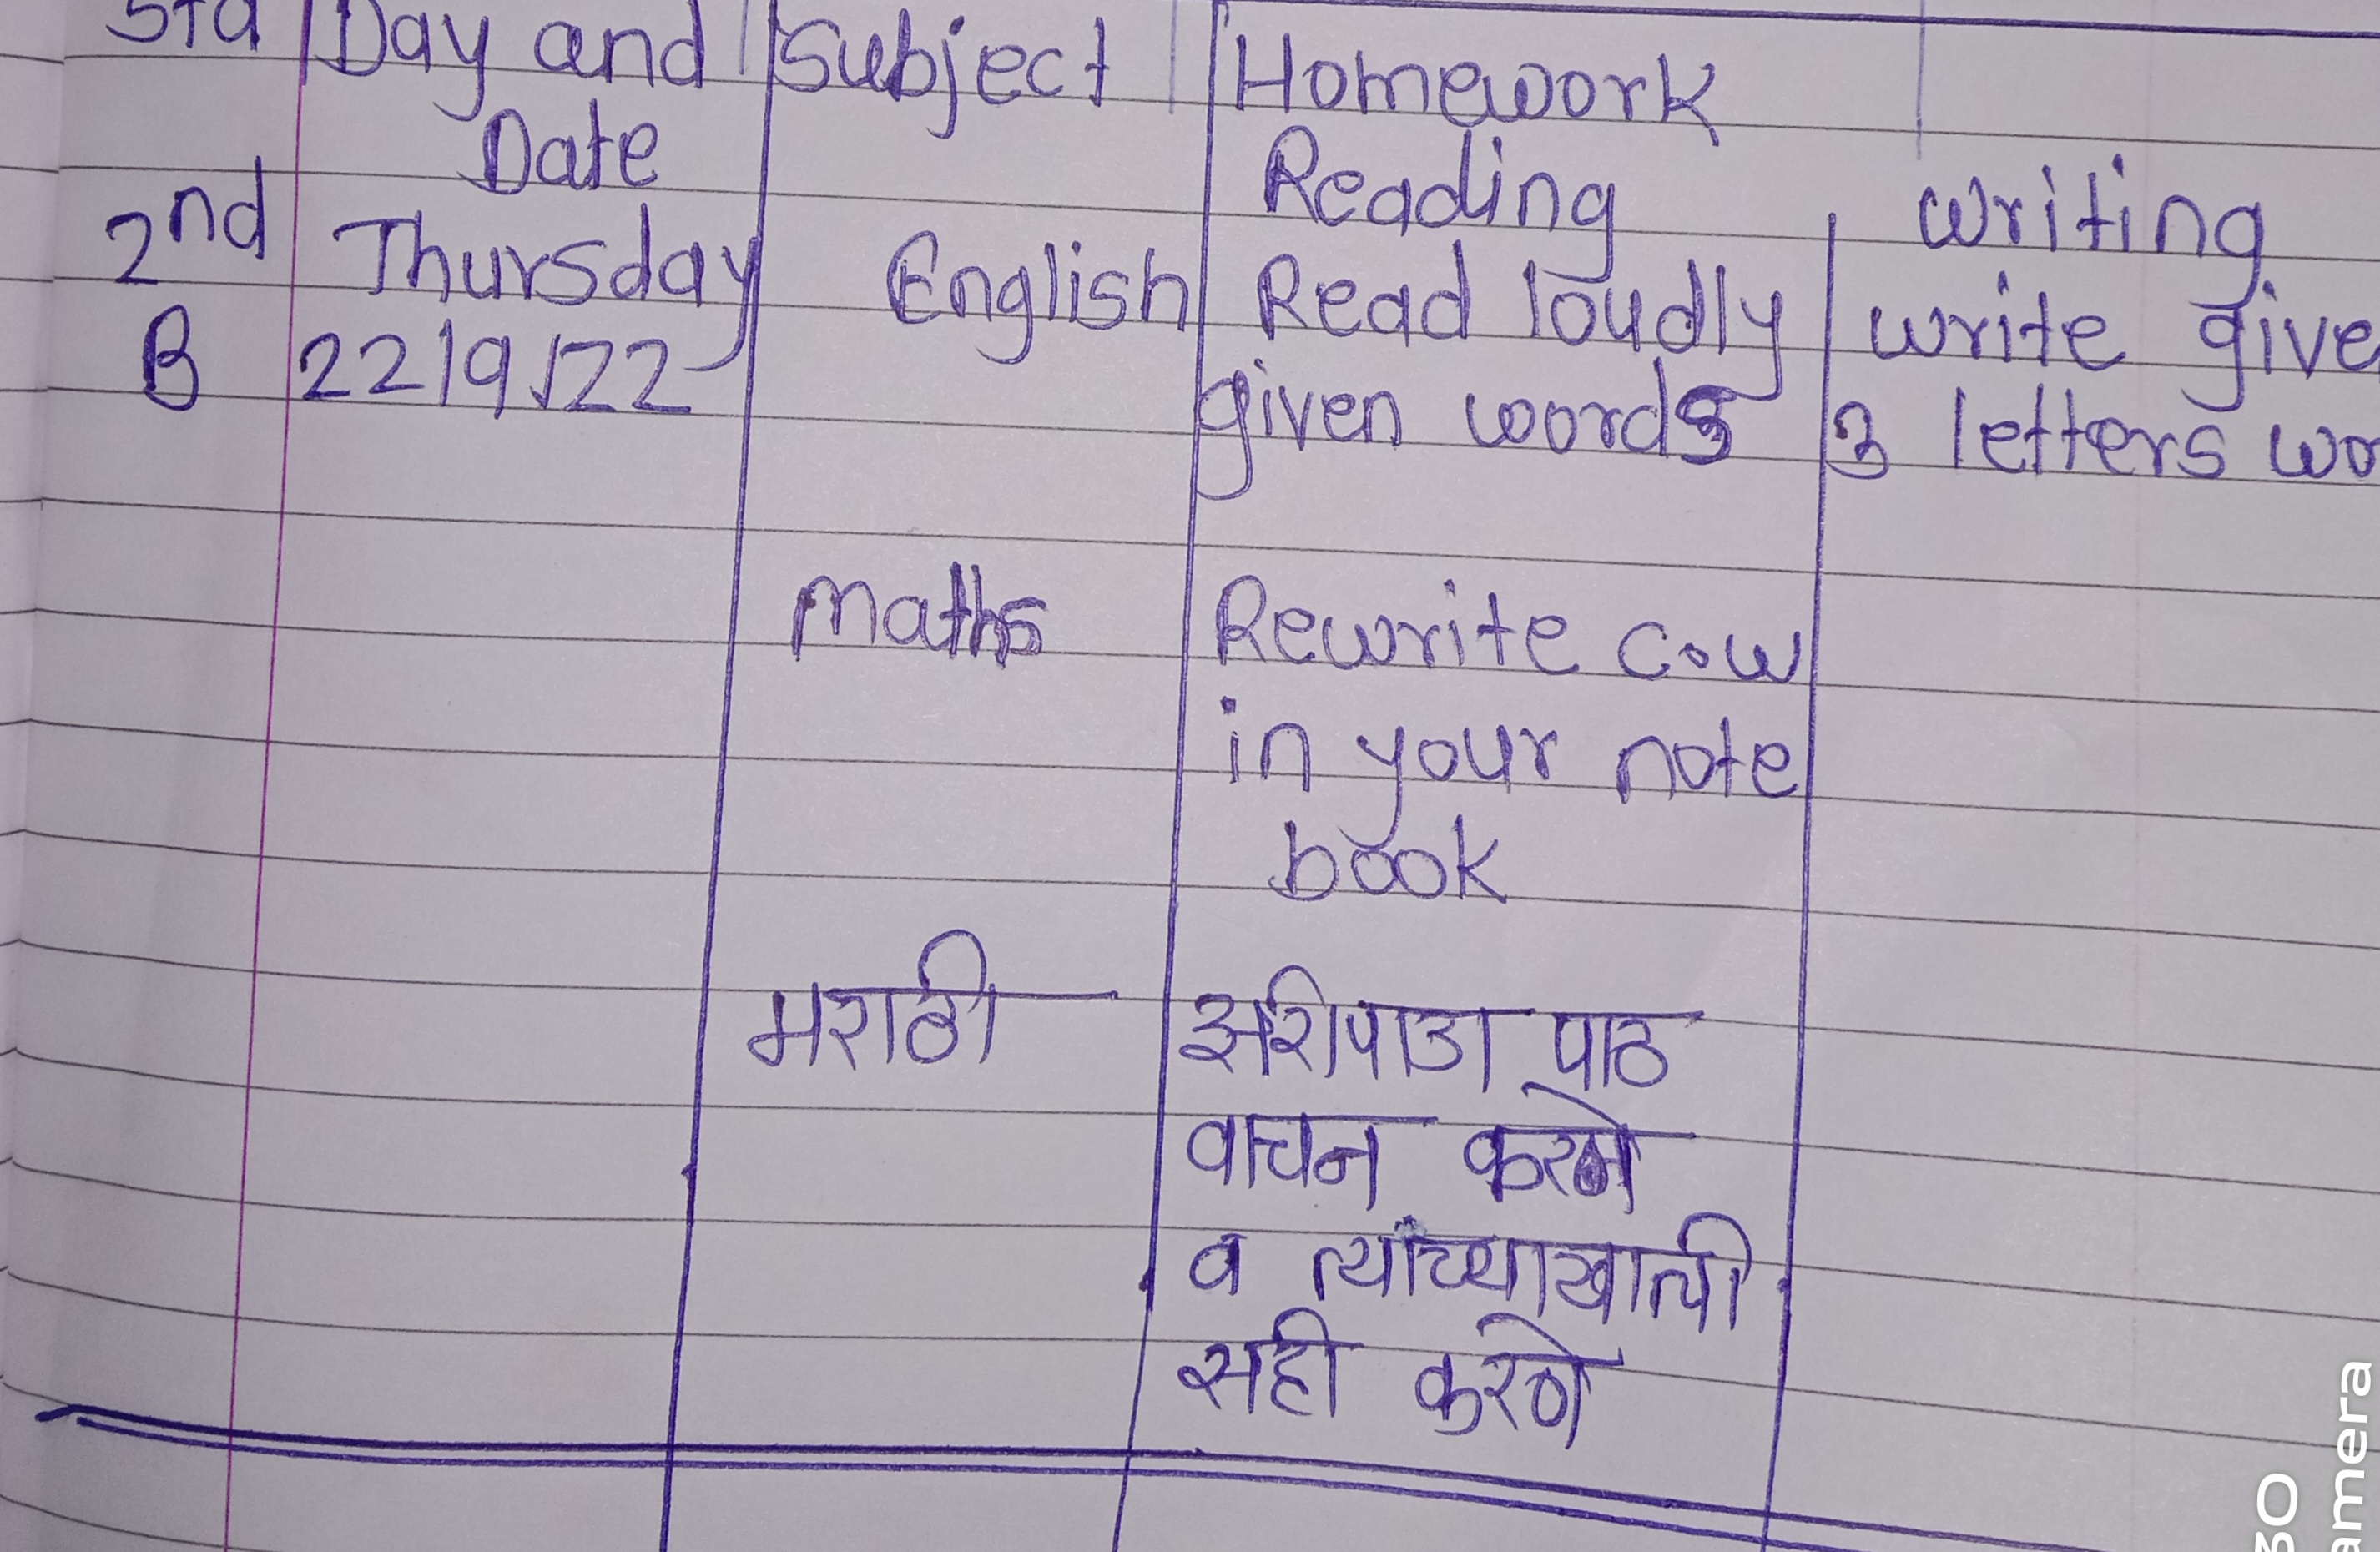 Std Day and Subject Homework
Date Reading writing
2nd Thursday English Read loudly write give
B 22/9/22 given words 3 letters wo
Maths Rewrite c.w
in your note
book
मराठी पाठ
वाचन करणे
व त्यांच्याखाली
सही करणे
30
amera